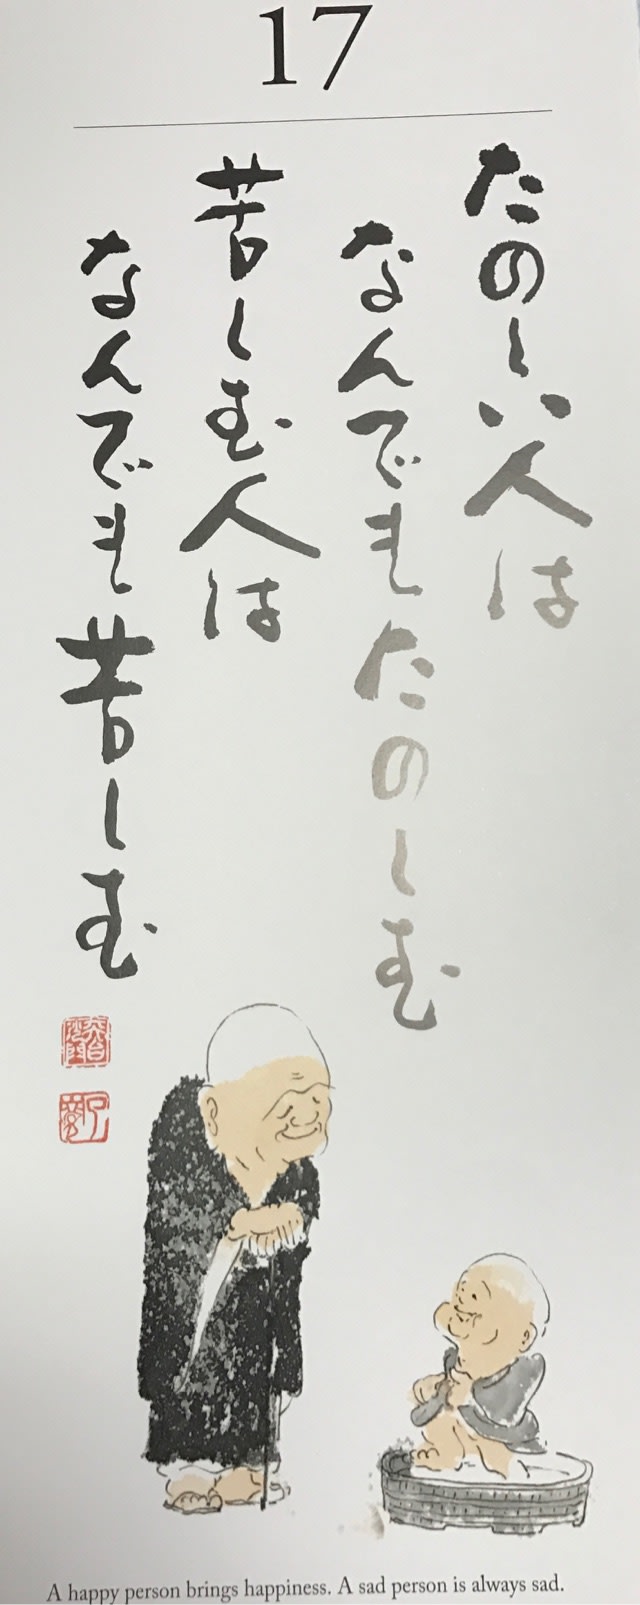 17
たのしい人は
なんでもたのしむ
苦しむ人は
なんでも苦しむ
A happy person brings happiness. A sad person is always sad.